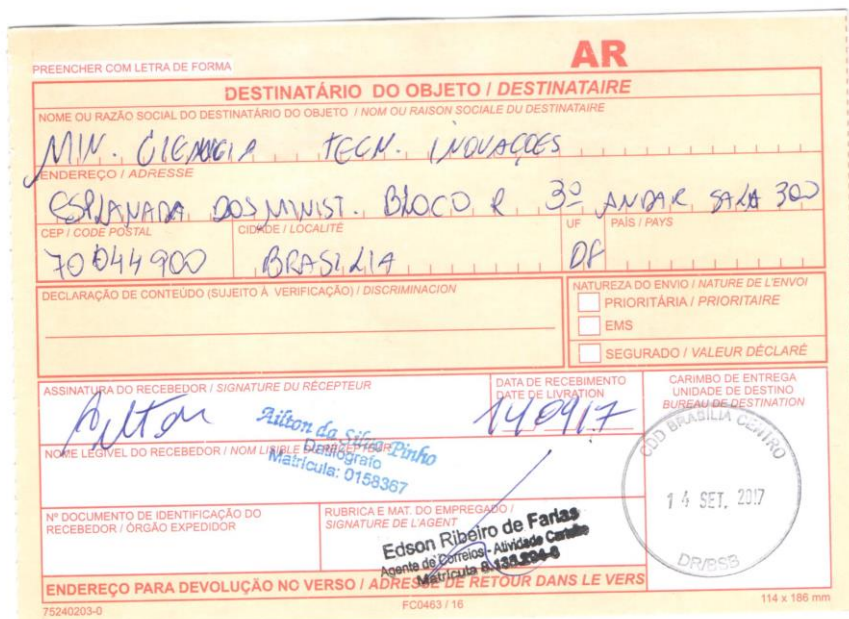 AR
PREENCHER COM LETRA DE FORMA
DESTINATÁRIO DO OBJETO / DESTINATAIRE
NOME OU RAZÃO SOCIAL DO DESTINATÁRIO DO OBJETO / NOM OU RAISON SOCIALE DU DESTINATAIRE
MIN. CIENCIA TECN. INOVAÇOES
ENDEREÇO / ADRESSE
ESPLANADA DOS MINIST. BLOCO R 3º ANDAR SALA 300
CEP / CODE POSTAL CIDADE / LOCALITÉ UF PAÍS / PAYS
70044900 BRASILIA DF
DECLARAÇÃO DE CONTEÚDO (SUJEITO À VERIFICAÇÃO) / DISCRIMINACION
NATUREZA DO ENVIO / NATURE DE L'ENVOI
PRIORITÁRIA / PRIORITAIRE
EMS
SEGURADO / VALEUR DÉCLARÉ
ASSINATURA DO RECEBEDOR / SIGNATURE DU RÉCEPTEUR
DATA DE RECEBIMENTO
DATE DE LIVRATION
CARIMBO DE ENTREGA
UNIDADE DE DESTINO
BUREAU DE DESTINATION
Ailton
140917
Ailton da Silva Pinho
Datilografo
Matrícula: 0158367
NOME LEGÍVEL DO RECEBEDOR / NOM LISIBLE DU RÉCEPTEUR
CDD BRASÍLIA CENTRO
14 SET. 2017
DR/BSB
Nº DOCUMENTO DE IDENTIFICAÇÃO DO
RECEBEDOR / ÓRGÃO EXPEDIDOR
RUBRICA E MAT. DO EMPREGADO /
SIGNATURE DE L'AGENT
Edson Ribeiro de Farias
Agente de Correios - Atividade Carteiro
Matrícula 8.138.294-6
ENDEREÇO PARA DEVOLUÇÃO NO VERSO / ADRESSE DE RETOUR DANS LE VERS
75240203-0 FC0463 / 16 114 x 186 mm